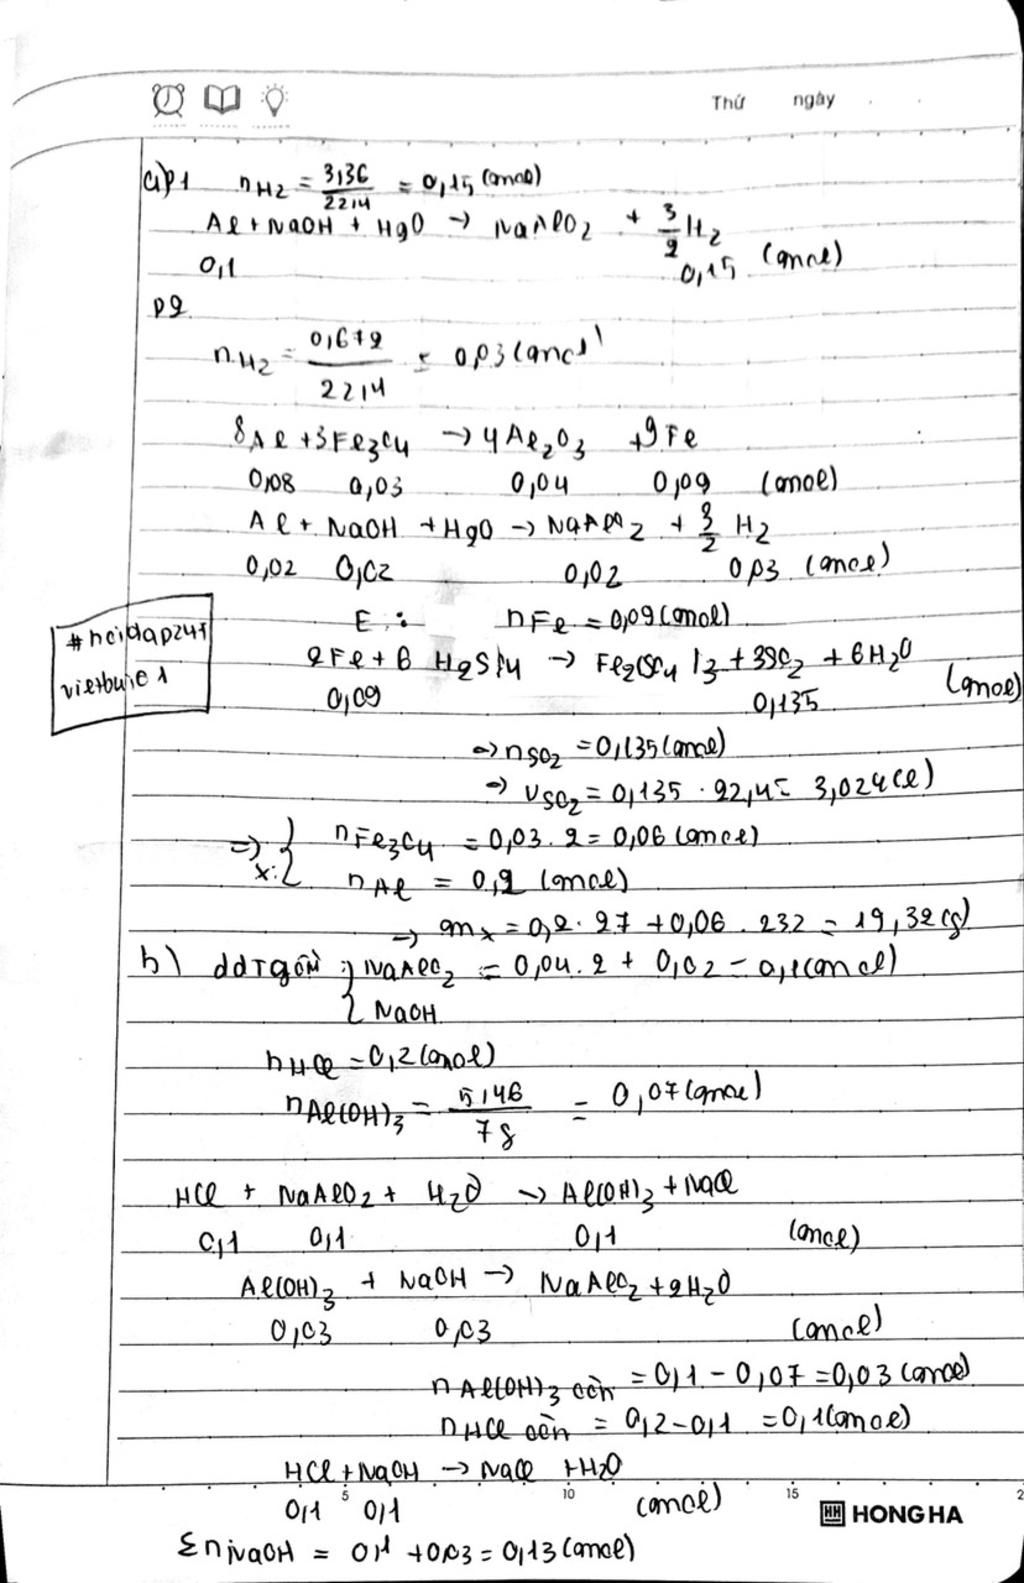 Thứ ngày
a) P1 nH2 = 3,36/22,4 = 0,15 (mol)
Al + NaOH + H2O → NaAlO2 + 3/2 H2
0,1 0,15 (mol)
P2
nH2 = 0,672/22,4 = 0,03 (mol)
8Al + 3Fe3O4 → 4Al2O3 + 9Fe
0,08 0,03 0,04 0,09 (mol)
Al + NaOH + H2O → NaAlO2 + 3/2 H2
0,02 0,02 0,02 0,03 (mol)
E : nFe = 0,09 (mol)
#hoidap247
vietbuie1
2Fe + 6 H2SO4 → Fe2(SO4)3 + 3SO2 + 6H2O
0,09 0,135 (mol)
=> nSO2 = 0,135 (mol)
=> VSO2 = 0,135 . 22,4 = 3,024 (l)
=> X: { nFe3O4 = 0,03 . 2 = 0,06 (mol)
nAl = 0,2 (mol)
=> mx = 0,2 . 27 + 0,06 . 232 = 19,32 (g)
b) ddT gồm : { NaAlO2 = 0,04 . 2 + 0,02 = 0,1 (mol)
NaOH
nHCl = 0,2 (mol)
nAl(OH)3 = 5,46/78 = 0,07 (mol)
HCl + NaAlO2 + H2O → Al(OH)3 + NaCl
0,1 0,1 0,1 (mol)
Al(OH)3 + NaOH → NaAlO2 + 2H2O
0,03 0,03 (mol)
nAl(OH)3 còn = 0,1 - 0,07 = 0,03 (mol)
nHCl còn = 0,2 - 0,1 = 0,1 (mol)
HCl + NaOH → NaCl + H2O
0,1 0,1 (mol)
5 10 15 2
HH HONG HA
ΣnNaOH = 0,1 + 0,03 = 0,13 (mol)